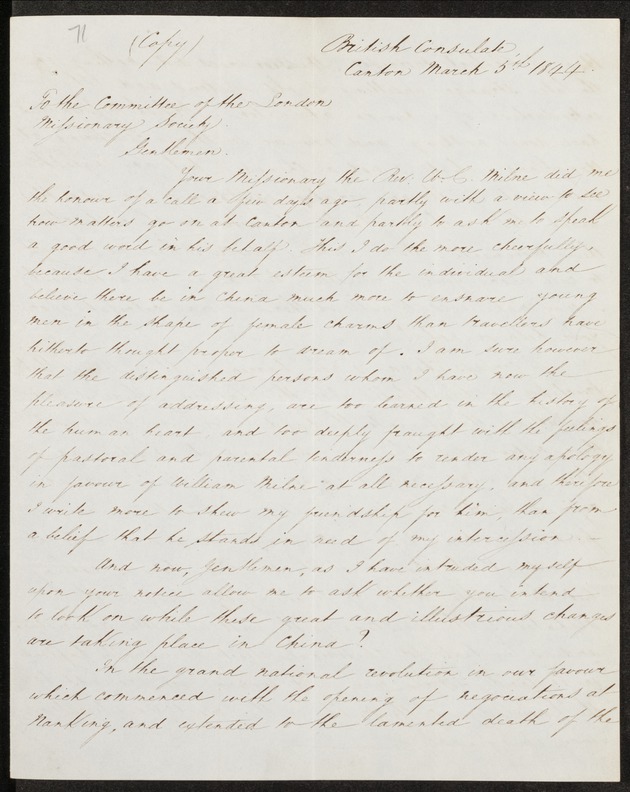 71
(Copy)
British Consulate
Canton March 5th 1844.
To the Committee of the London
Missionary Society.
Gentlemen.
Your Missionary the Rev. W. C. Milne did me
the honour of a call a few days ago, partly with a view to see
how matters go on at Canton and partly to ask me to speak
a good word in his behalf. This I do the more cheerfully,
because I have a great esteem for the individual and
believe there be in China much more to ensnare young
men in the shape of female charms than travellers have
hitherto thought proper to dream of. I am sure however
that the distinguished persons whom I have now the
pleasure of addressing, are too learned in the history of
the human heart and too deeply fraught with the feelings
of pastoral and parental tenderness to render any apology
in favour of William Milne at all necessary, and therefore
I write more to shew my friendship for him, than from
a belief that he stands in need of my intercession
And now, Gentlemen, as I have intruded myself
upon your notice allow me to ask whether you intend
to look on while these great and illustrious changes
are taking place in China?
In the grand national revolution in our favour
which commenced with the opening of negociations at
Nanking, and extended to the lamented death of the